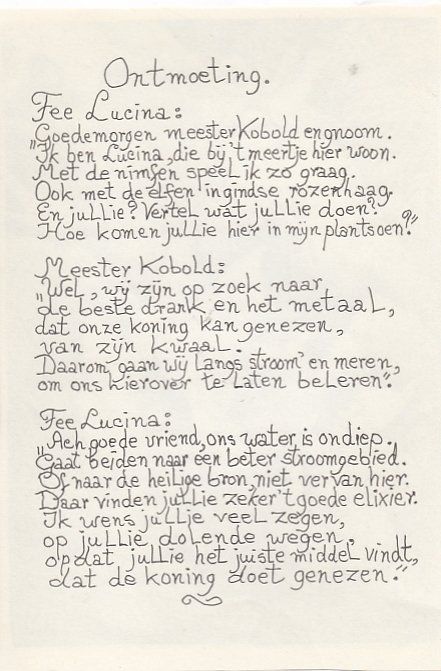 Ontmoeting.
Fee Lucina:
„Goedemorgen meester Kobold en gnoom.
Ik ben Lucina, die bij 't meertje hier woon.
Met de nimfen speel ik zo graag.
Ook met de elfen in gindse rozenhaag.
En jullie? Vertel wat jullie doen?
Hoe komen jullie hier in mijn plantsoen?"
Meester Kobold:
„Wel, wij zijn op zoek naar
de beste drank en het metaal,
dat onze koning kan genezen,
van zijn kwaal.
Daarom gaan wij langs stroom en meren,
om ons hierover te laten beleren".
Fee Lucina:
„Ach goede vriend, ons water is ondiep.
Gaat beiden naar een beter stroomgebied.
Of naar de heilige bron, niet ver van hier.
Daar vinden jullie zeker 't goede elixier.
Ik wens jullie veel zegen,
op jullie dolende wegen.
opdat jullie het juiste middel vindt,
dat de koning doet genezen."